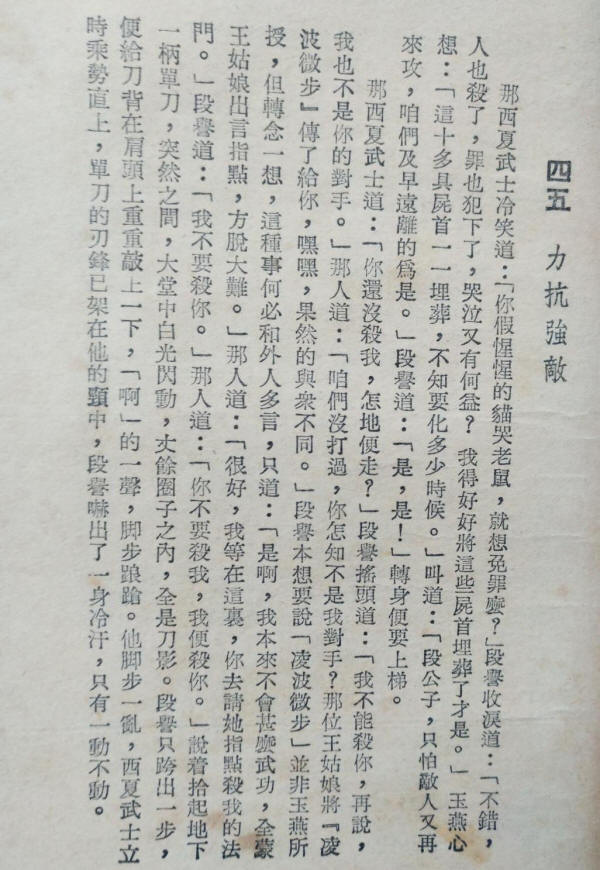 四五　力抗強敵
那西夏武士冷笑道：「你假惺惺的貓哭老鼠，就想免罪麼？」段譽收淚道：「不錯，
人也殺了，罪也犯下了，哭泣又有何益？我得好好將這些屍首埋葬了才是。」玉燕心
想：「這十多具屍首一一埋葬，不知要化多少時候。」叫道：「段公子，只怕敵人又再
來攻，咱們及早遠離的爲是。」段譽道：「是，是！」轉身便要上梯。
那西夏武士道：「你還沒殺我，怎地便走？」段譽搖頭道：「我不能殺你，再說，
我也不是你的對手。」那人道：「咱們沒打過，你怎知不是我對手？那位王姑娘將『凌
波微步』傳了給你，嘿嘿，果然的與衆不同。」段譽本想要說「凌波微步」並非玉燕所
授，但轉念一想，這種事何必和外人多言，只道：「是啊，我本來不會甚麼武功，全蒙
王姑娘出言指點，方脫大難。」那人道：「很好，我等在這裏，你去請她指點殺我的法
門。」段譽道：「我不要殺你。」那人道：「你不要殺我，我便殺你。」說着拾起地下
一柄單刀，突然之間，大堂中白光閃動，丈餘圈子之內，全是刀影。段譽只跨出一步，
便給刀背在肩頭上重重敲上一下，「啊」的一聲，脚步踉蹌。他脚步一亂，西夏武士立
時乘勢直上，單刀的刃鋒已架在他的頸中，段譽嚇出了一身冷汗，只有一動不動。